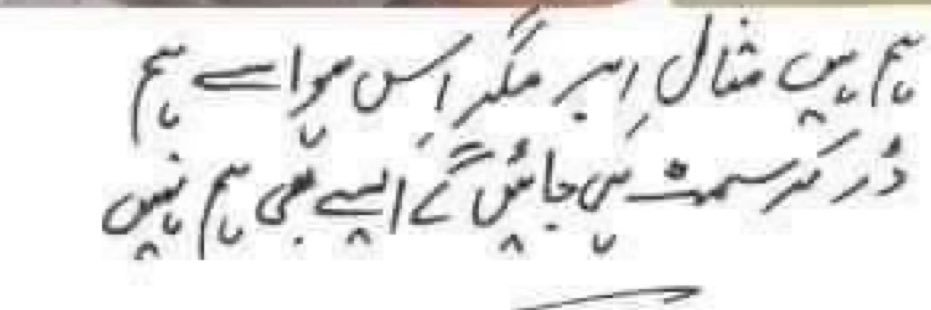 ہم ہیں مثالِ ابر مگر اس ہوا سے ہم
ڈر کر سمٹ ہی جائیں گے ایسے بھی ہم نہیں